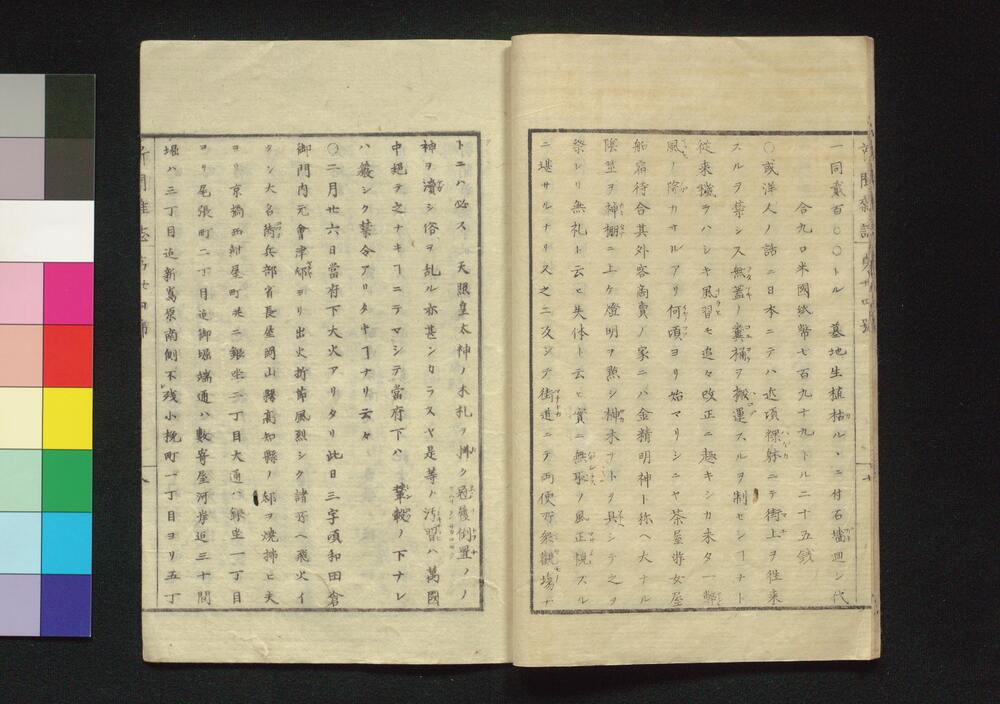 一同貳百〇〇トル 墓地生植枯ル丶ニ付石墻廻シ代
合九口米國紙幣七百九十九トル二十五錢
〇或洋人ノ話ニ日本ニテハ近頃裸躰ニテ街上ヲ往来
スルヲ禁シス無蓋ノ糞桶ヲ搬運スルヲ制セシヿナト
従来穢ラハシキ風習モ追々改正ニ趣キシカ未タ一弊
風ノ除カサルアリ何頃ヨリ始マリシニヤ茶屋遊女屋
船宿待合其外客商賣ノ家ニハ金精明神ト称ヘ大ナル
陰莖ヲ神棚ニ上ケ燈明ヲ㸃シ神木ナト具シテ之ヲ
祭レリ無礼ト云ヒ失体ト云ヒ實ニ無恥ノ風正視スル
ニ堪サルナリ又之ニ次シテ街道ニテ両便所衆觀場ナ
トニハ必ス 天照皇太神ノ木札ヲ掛ク冠履倒置ノノ
神ヲ瀆シ俗ヲ乱ル亦甚シカラスヤ是等ノ汚習ハ萬國
中絶テ之ナキヿニテマシテ當府下ハ 輦轂ノ下ナレ
ハ嚴シク禁令アリタキヿナリ云々
〇二月廿六日當府下大火アリタリ此日三字頃和田倉
御門内元會津邸ヨリ出火折節風烈シク諸所ヘ飛火イ
タシ大名街兵部省長屋岡山縣高知縣ノ邸ヲ燒拂ヒ夫
ヨリ京橋西紺屋町並ニ銀坐二丁目大通ハ銀坐一丁目
ヨリ尾張町二丁目迄御堀端通ハ數寄屋河岸迄三十間
堀ハ三丁目迄新嶌原南側不残小挽町一丁目ヨリ五丁
新聞雑誌